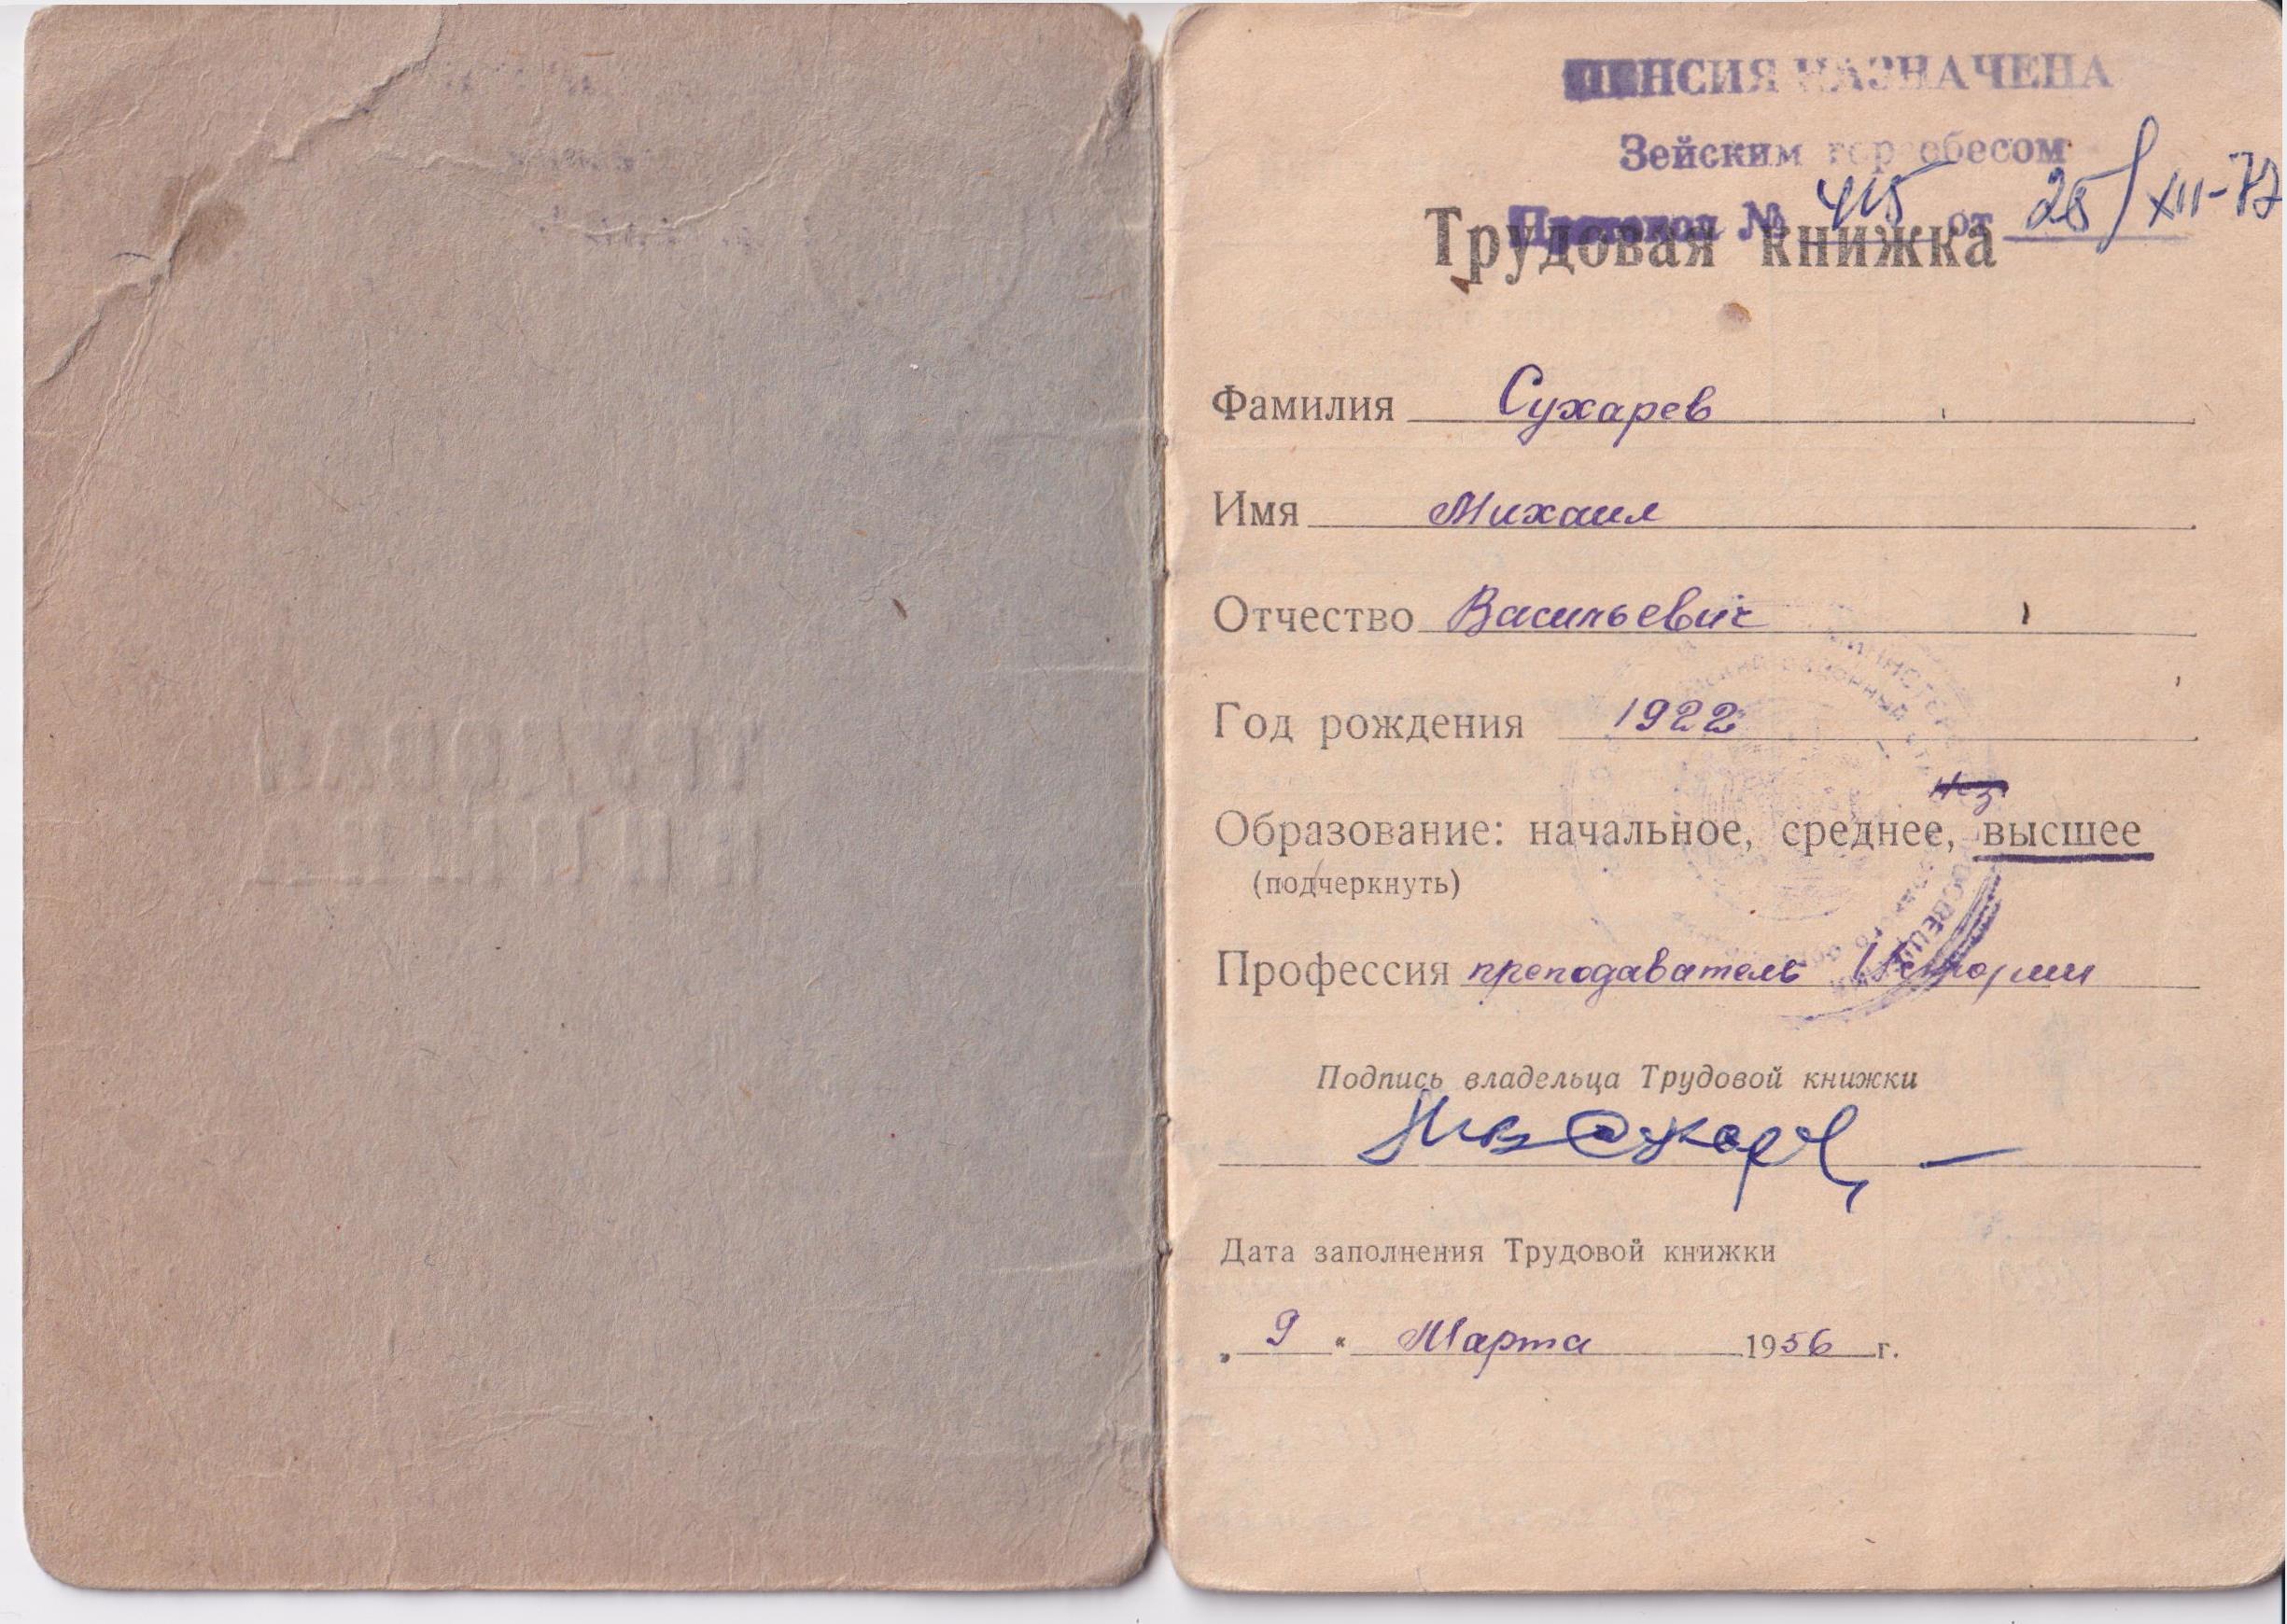 ПЕНСИЯ НАЗНАЧЕНА
Зейским горсобесом
Протокол № 415 от 28/XII-77
Трудовая книжка
Фамилия Сухарев
Имя Михаил
Отчество Васильевич
Год рождения 1922
Образование: начальное, среднее, высшее
(подчеркнуть)
Профессия преподаватель Истории
Подпись владельца Трудовой книжки
Дата заполнения Трудовой книжки
„ 9 “ Марта 1956 г.
ТРУДОВАЯ
КНИЖКА